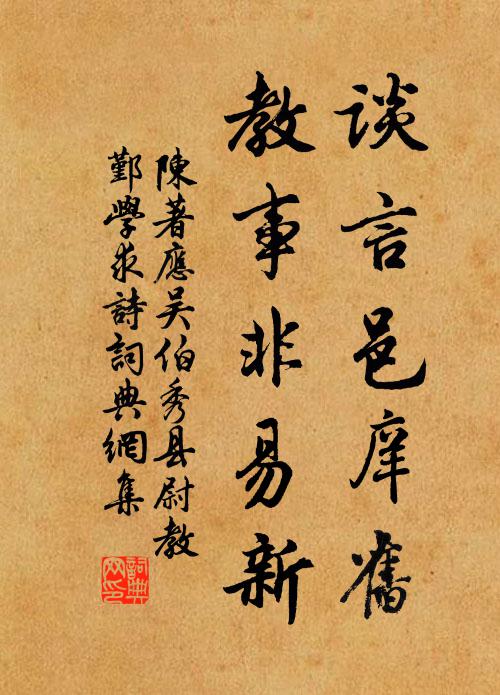 谈言邑庠舊
教事非易新
陳著應吴伯秀县尉教
鄞學求詩詞典網集
詞典
网印